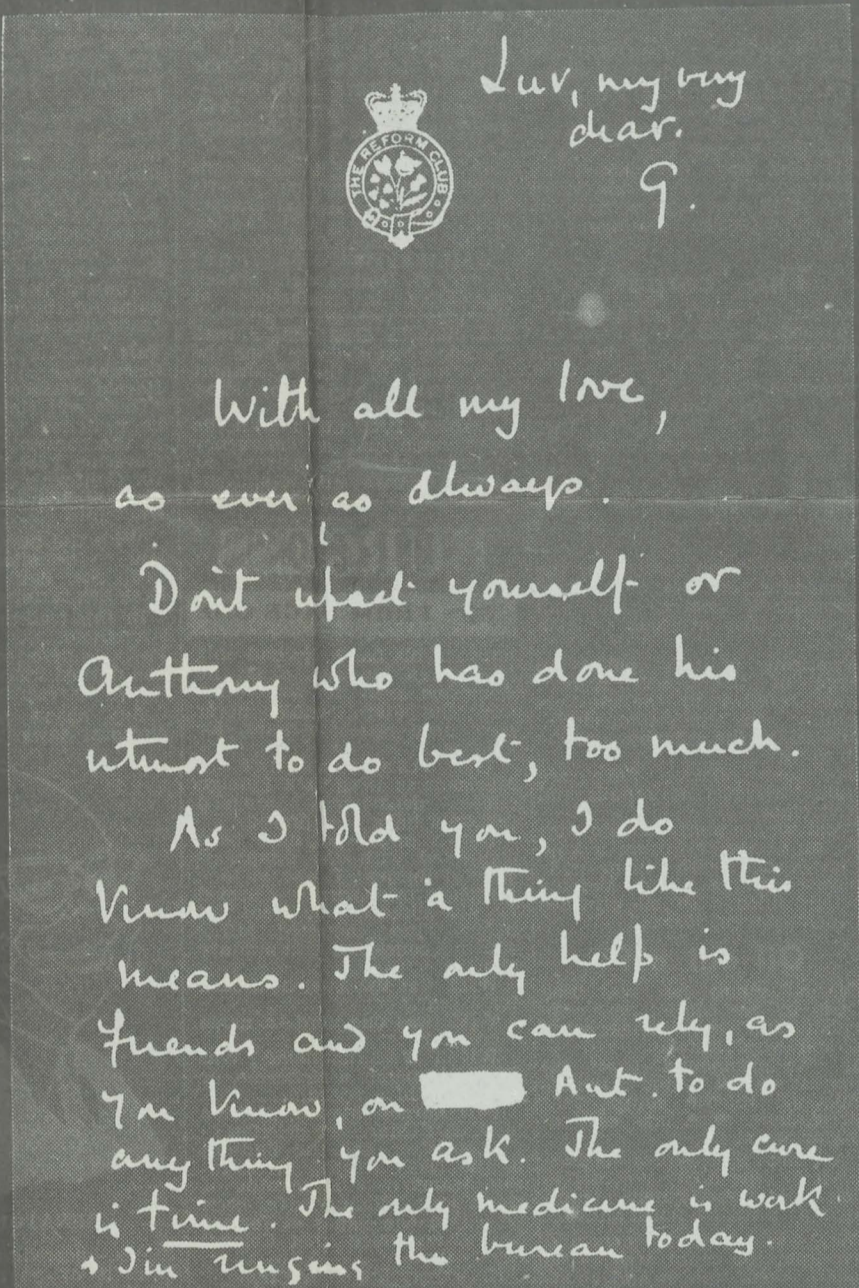 Luv, my very
dear.
G.
THE REFORM CLUB
With all my love,
as ever as always.
Don't upset yourself or
Anthony who has done his
utmost to do best, too much.
As I told you, I do
know what a thing like this
means. The only help is
friends and you can rely, as
you know, on Ant. to do
anything you ask. The only cure
is time. The only medicine is work
+ I'm ringing the bureau today.